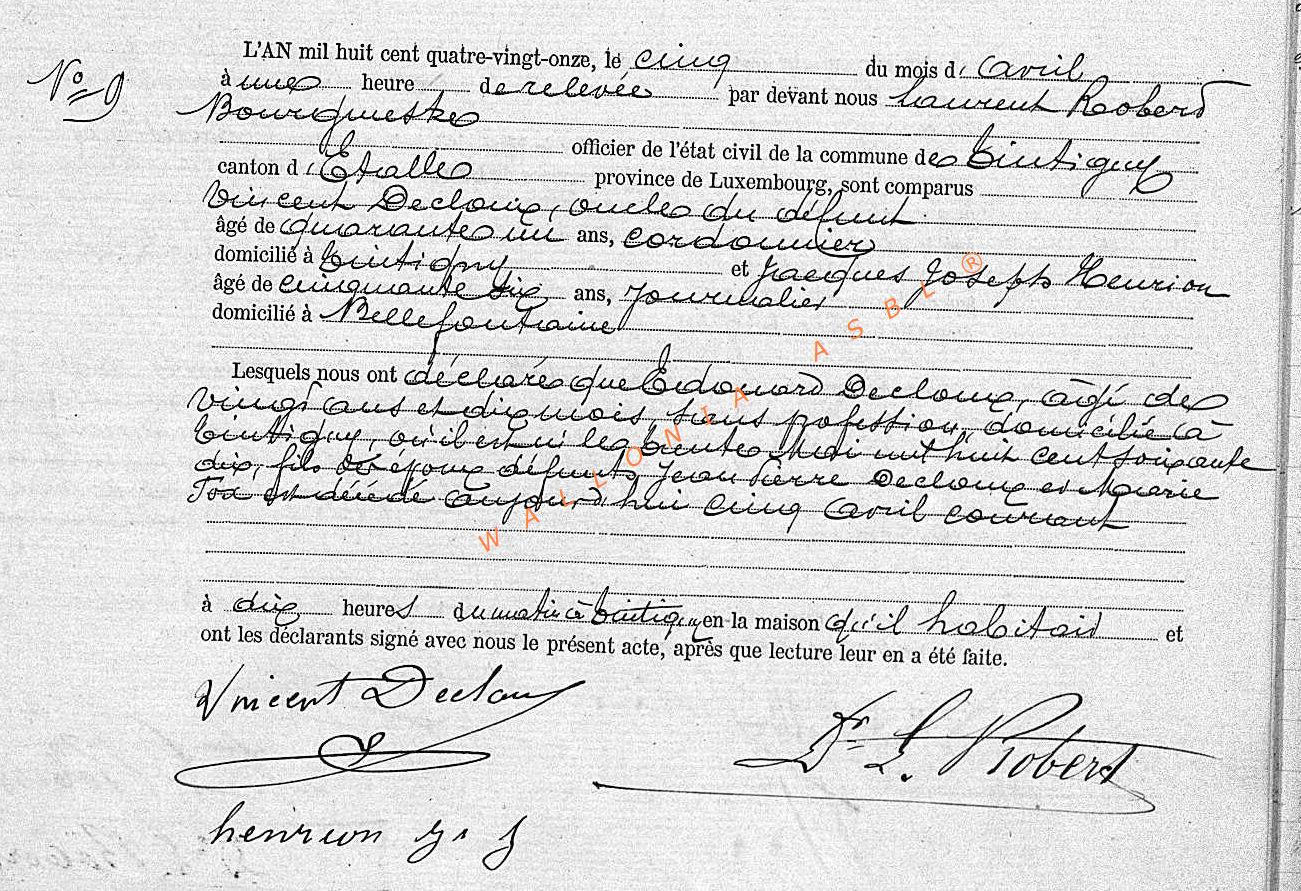 N° 9
L'AN mil huit cent quatre-vingt-onze, le cinq du mois d' avril
à une heure de relevée par devant nous Laurent Robert
Bourgmestre
officier de l'état civil de la commune de Tintigny
canton d' Etalle province de Luxembourg, sont comparus
Vincent Decloux, oncle du défunt
âgé de quarante un ans, cordonnier
domicilié à Tintigny et Jacques Joseph Henrion
âgé de cinquante six ans, journalier
domicilié à Bellefontaine
Lesquels nous ont déclaré que Edouard Decloux, âgé de
vingt ans et dix mois, sans profession, domicilié à
Tintigny, où il est né le trente Mai mil huit cent soixante
dix, fils des époux défunts Jean Pierre Decloux et Marie
est décédé aujourd'hui cinq avril courant
à dix heures du matin à Tintigny en la maison qu'il habitait et
ont les déclarants signé avec nous le présent acte, après que lecture leur en a été faite.
Vincent Decloux
Dr L. Robert
henrion j. j
WALLONIA ASBL ®